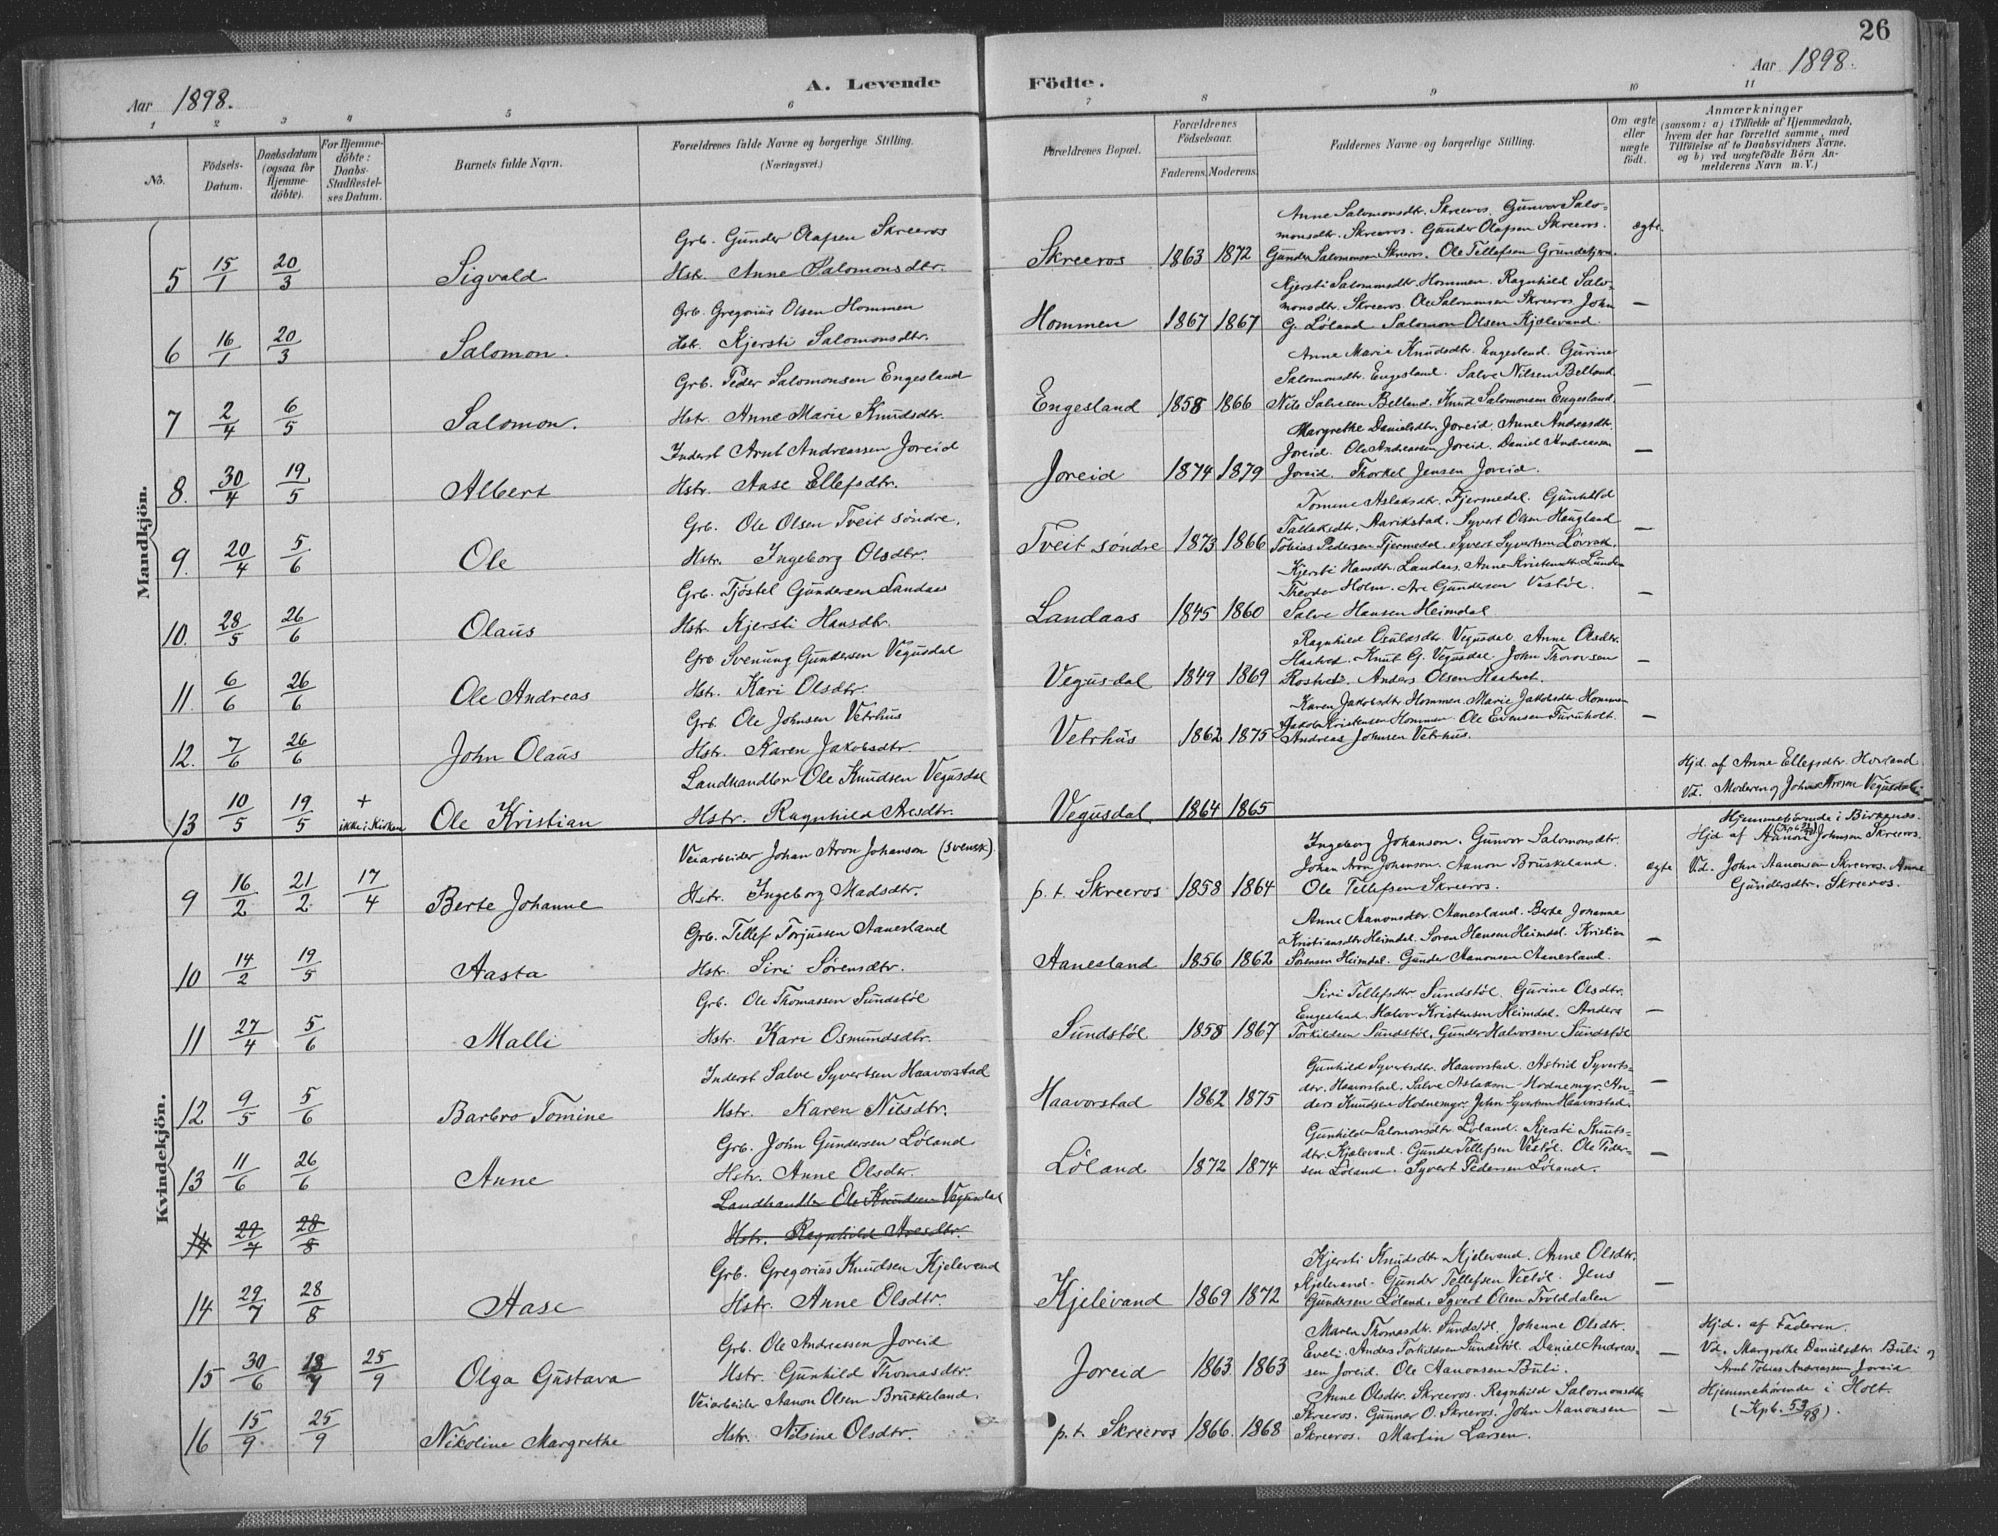 26
Aar 1898.
A. Levende Födte.
Aar 1898.
1 2 3 4 5 6 7 8 9 10 11
No.
Födsels-Datum.
Daabsdatum (ogsaa for Hjemmedöbte).
For Hjemmedöbte: Daabs-Stadfæstelses Datum.
Barnets fulde Navn.
Forældrenes fulde Navne og borgerlige Stilling.
(Næringsvei.)
Forældrenes Bopæl.
Forældrenes Födselsaar.
Faderens. Moderens.
Faddernes Navne og borgerlige Stilling.
Om ægte eller uægte födt.
Anmærkninger
(saasom: a) i Tilfælde af Hjemmedaab, hvem der har forrettet samme, med Tilföielse af to Daabsvidners Navne, og b) ved uægtefödte Börn Anmelderens Navn m. V.)
Mandkjön.
5 15/1 20/3 Sigvald
Grb. Gunder Olafsen Skreeros
Hstr. Anne Salomonsdtr.
Skreeros 1863 1872
Anne Salomonsdtr. Skreeros. Gunvor Salo-
monsdtr. Skreeros. Gunder Olafsen Skreeros.
Gunder Salomonsen Skreeros. Ole Tellefsen Grundetjern.
ægte
6 16/1 20/3 Salomon.
Grb. Gregorius Olsen Hommen
Hstr. Kjersti Salomonsdtr.
Hommen 1867 1867
Kjersti Salomonsdtr. Hommen. Ragnhild Salo-
monsdtr. Skreeros. Ole Salomonsen Skreeros. John
G. Löland. Salomon Olsen Kjelevand.
—
7 2/4 6/5 Salomon.
Grb. Peder Salomonsen Engesland
Hstr. Anne Marie Knudsdtr.
Engesland 1858 1866
Anne Marie Knudsdtr. Engesland. Gurine
Salomonsdtr. Engesland. Salve Nilsen Belland.
Nils Salvesen Belland. Knud Salomonsen Engesland.
—
8. 30/4 19/5 Albert
Inderst Arnt Andreassen Joreid
Hstr. Aase Ellefsdtr.
Joreid 1874 1879
Margrethe Danielsdtr. Joreid. Anne Andreasdtr.
Joreid. Ole Andreassen Joreid. Daniel Andreassen
Joreid. Thorkel Jensen Joreid.
—
9. 20/4 5/6 Ole
Grb. Ole Olsen Tveit söndre.
Hstr. Ingeborg Olsdtr.
Tveit söndre 1873 1866
Tomine Aslaksdtr. Tjermedal. Gunhild
Tallaksdtr. Aarikstad. Syvert Olsen Haugland
Tobias Pedersen Tjermedal. Syvert Syvertsen
—
10. 28/5 26/6 Olaus
Grb. Tjöstel Gundersen Landaas
Hstr. Kjersti Hansdtr.
Landaas 1845 1860
Kjersti Hansdtr. Landaas. Anne Kristensdtr.
Theodor Holm. Are Gundersen Vestöl.
Salve Hansen Heimdal
—
11. 6/6 26/6 Ole Andreas
Grb. Svenung Gundersen Vegusdal
Hstr. Kari Olsdtr.
Vegusdal 1849 1869
Ragnhild Vegusdal. Anne Olsdtr.
Haatvet. Knut G. Vegusdal. John Thorovsen
Rostvet. Anders Olsen Haatvet.
—
12. 7/6 26/6 John Olaus
Grb. Ole Johnsen Vetrhus
Hstr. Karen Jakobsdtr.
Vetrhus 1862 1875
Karen Jakobsdtr. Hommen. Marie Jakobsdtr. Hommen
Jakob Kristensen Hommen. Ole Evensen Furuholt.
Andreas Johnsen Vetrhus.
—
13 10/5 19/5 + ikke i Kirken Ole Kristian
Landhandler Ole Knudsen Vegusdal
Hstr. Ragnhild Aresdtr.
Vegusdal. 1864 1865
Hjd. af Anne Ellefsdtr. Hovland
Vd. Moderen og John Aresen Vegusdal.
Kvindekjön.
9 16/2 21/2 17/4 Berte Johanne
Veiarbeider Johan Aron Johanson (svensk).
Hstr. Ingeborg Madsdtr.
p. t. Skreeros 1858 1864
Ingeborg Johanson. Gunvor Salomonsdtr.
Johan Aron Johanson. Aanon Bruskeland.
Ole Tellefsen Skreeros.
ægte
Hjemmehörende i Birkenes.
Hjd af Aanon Johnsen Skreeros.
Vd. John Aanonsen Skreeros. Anne
Gundersdtr. Skreeros.
10 14/2 19/5 Aasta
Grb. Tellef Torjussen Aanesland
Hstr. Siri Sörensdtr.
Aanesland 1856 1862
Anne Aanonsdtr. Aanesland. Berte Johanne
Kristiansdtr Heimdal. Soren Hansen Heimdal. Kristian
Sörensen Heimdal. Gunder Aanonsen Aanesland.
—
11 27/4 5/6 Malli
Grb. Ole Thomassen Sundstöl
Hstr. Kari Osmundsdtr.
Sundstöl 1858 1867
Siri Tellefsdtr Sundstöl. Gurine Olsdtr.
Engesland. Halvor Kristensen Heimdal. Anders
Torkildsen Sundstöl. Gunder Halvorsen Sundstöl
—
12 9/5 5/6 Barbro Tomine
Inderst Salve Syvertsen Haavorstad
Hstr. Karen Nilsdtr.
Haavorstad 1862 1875
Gunhild Syvertsdtr. Haavorstad. Astrid Syverts-
dtr. Haavorstad. Salve Aslaksen Hodnemyr. An-
ders Knudsen Hodnemyr. John Syvertsen Haavorstad.
—
13 11/6 26/6 Anne
Grb. John Gundersen Löland
Hstr. Anne Olsdtr.
Löland 1872 1874
Gunhild Salomonsdtr. Löland. Kjersti Knuts-
dtr. Kjelevand. Gunder Tellefsen Vestöl. Ole Peder-
sen Löland. Syvert Pedersen Löland.
—
14 29/7 28/8
Landhandler Ole Knudsen Vegusdal
Hstr. Ragnhild Aresdtr.
14 29/7 28/8 Aase
Grb. Gregorius Knudsen Kjelevand
Hstr. Anne Olsdtr.
Kjelevand 1869 1872
Kjersti Knudsdtr Kjelevand. Anne Olsdtr.
Kjelevand. Gunder Tellefsen Vestöl. Jens
Gundersen Löland. Syvert Olsen Trolddalen
—
15 30/6 18/7 25/9 Olga Gustava
Grb. Ole Andreassen Joreid
Hstr. Gunhild Thomasdtr.
Joreid 1863 1863
Maren Thomasdtr. Sundstöl. Johanne Olsdtr.
Eveli. Anders Torkildsen Sundstöl. Daniel Andreas-
sen Joreid. Ole Aanonsen Buli.
—
Hjd. af Faderen.
Vd. Margrethe Danielsdtr. Buli og
Arnt Tobias Andreassen Joreid
16 15/9 25/9 Nikoline Margrethe
Veiarbeider Aanon Olsen Bruskeland.
Hstr. Nilsine Olsdtr.
p. t. Skreeros 1866. 1868
Anne Olsdtr. Skreeros. Ragnhild Salomonsdtr
Skreeros. Gunnar O. Skreeros. John Aanonsen
Skreeros. Martin Larsen.
—
Hjemmehörende i Holt.
(Kpb. 53/98).